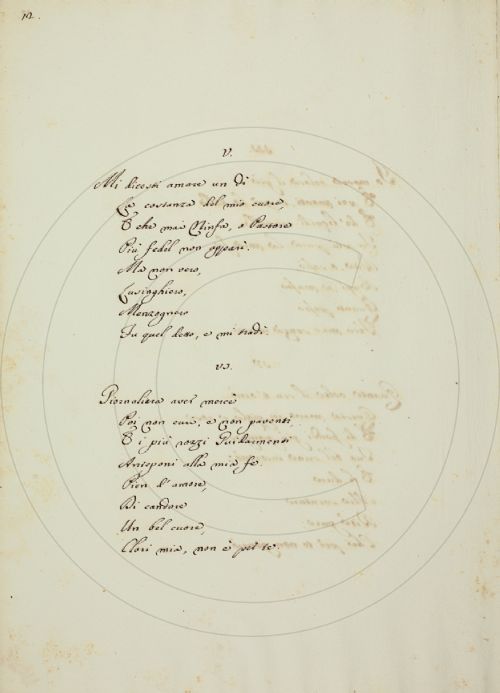 12.
V.
Mi dicesti amare un dì
La costanza del mio cuore,
E che mai Ninfa, o Pastore
Più fedel non apparì.
Ma non vero,
Lusinghiero,
Menzognero
Fu quel detto, e mi tradì.
VI.
aver mercè
Poi non curi, e non paventi,
E i più rozzi
Anteponi alla mia fe.
Pien d'amore,
Di candore
Un bel cuore,
Clori mia, non è per te.